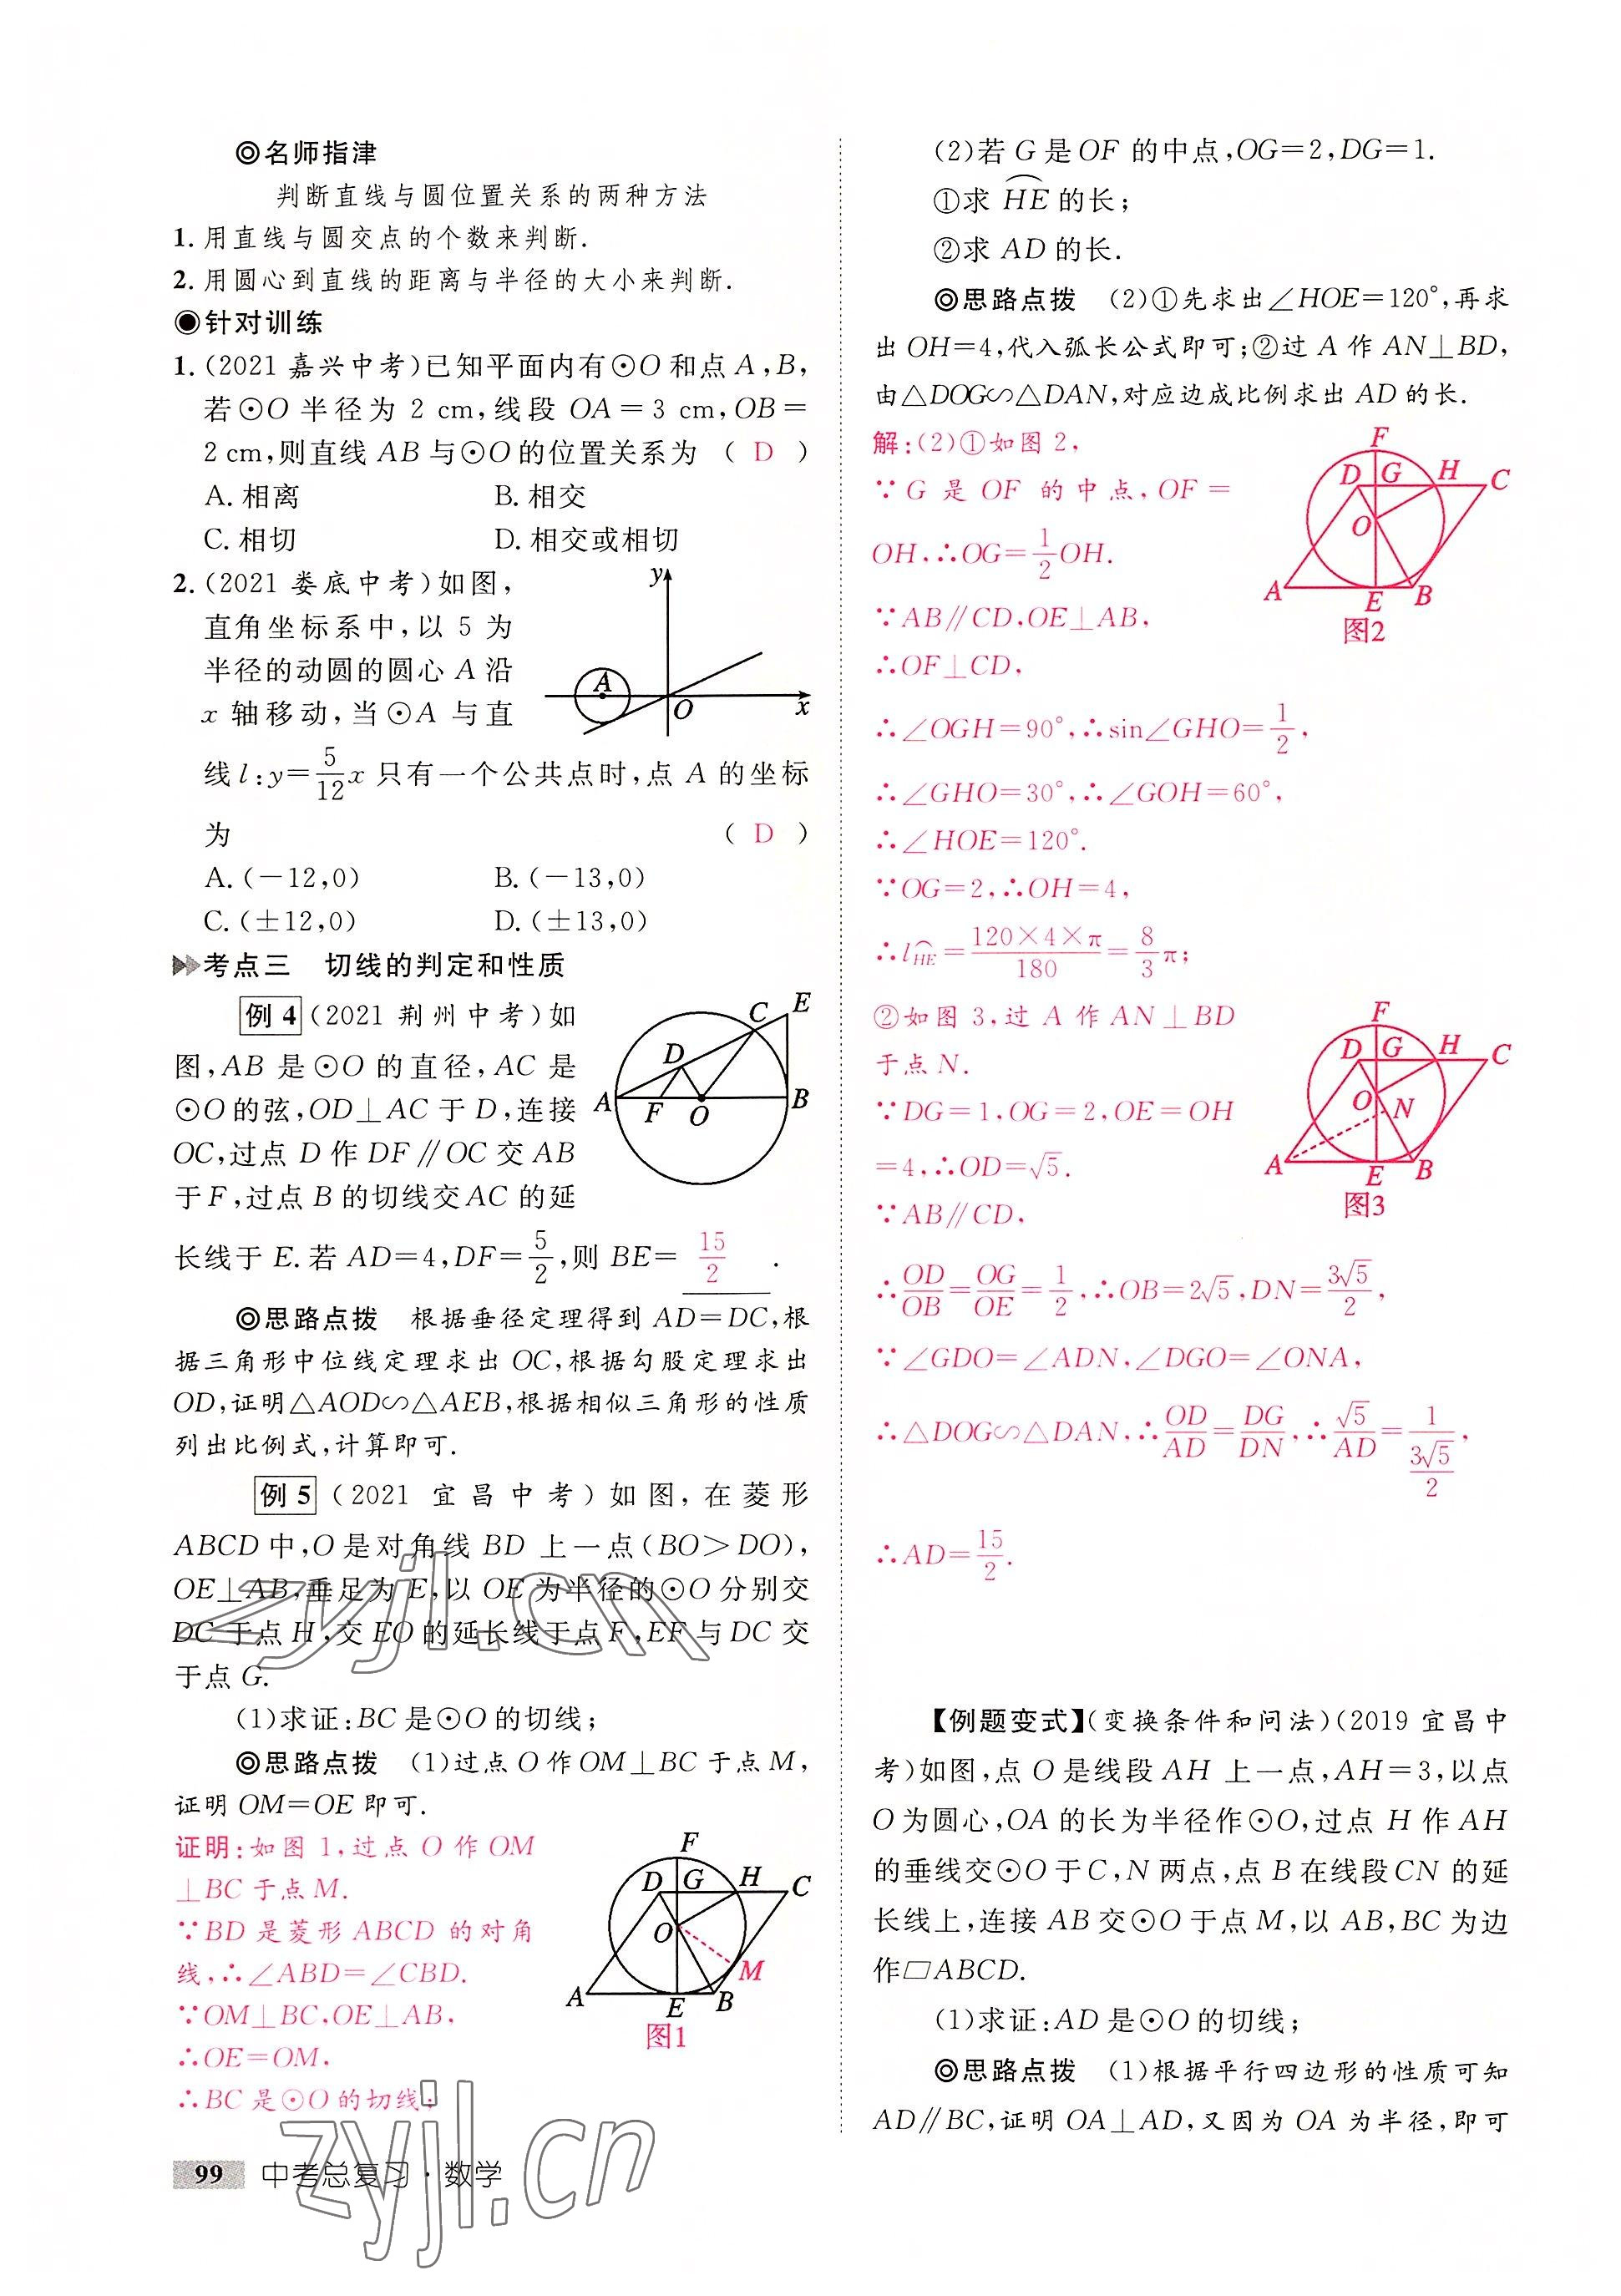 ◎名师指津
判断直线与圆位置关系的两种方法
1. 用直线与圆交点的个数来判断.
2. 用圆心到直线的距离与半径的大小来判断.
◉针对训练
1. (2021 嘉兴中考)已知平面内有⊙O 和点 A,B,
若⊙O 半径为 2 cm,线段 OA=3 cm,OB=
2 cm,则直线 AB 与⊙O 的位置关系为 ( D )
A. 相离 B. 相交
C. 相切 D. 相交或相切
2. (2021 娄底中考)如图,
直角坐标系中,以 5 为
半径的动圆的圆心 A 沿
x 轴移动,当⊙A 与直
线 l:y=5/12 x 只有一个公共点时,点 A 的坐标
为 ( D )
A. (-12,0) B. (-13,0)
C. (±12,0) D. (±13,0)
y
A
O
x
考点三 切线的判定和性质
例 4 (2021 荆州中考)如
图,AB 是⊙O 的直径,AC 是
⊙O 的弦,OD⊥AC 于 D,连接
OC,过点 D 作 DF∥OC 交 AB
于 F,过点 B 的切线交 AC 的延
长线于 E. 若 AD=4,DF=5/2,则 BE= 15/2 .
E
C
D
A
F
O
B
◎思路点拨 根据垂径定理得到 AD=DC,根
据三角形中位线定理求出 OC,根据勾股定理求出
OD,证明△AOD∽△AEB,根据相似三角形的性质
列出比例式,计算即可.
例 5 (2021 宜昌中考)如图,在菱形
ABCD 中,O 是对角线 BD 上一点(BO>DO),
OE⊥AB,垂足为 E,以 OE 为半径的⊙O 分别交
DC 于点 H,交 EO 的延长线于点 F,EF 与 DC 交
于点 G.
(1)求证:BC 是⊙O 的切线;
◎思路点拨 (1)过点 O 作 OM⊥BC 于点 M,
证明 OM=OE 即可.
证明:如图 1,过点 O 作 OM
⊥BC 于点 M.
∵BD 是菱形 ABCD 的对角
线,∴∠ABD=∠CBD.
∵OM⊥BC,OE⊥AB,
∴OE=OM,
∴BC 是⊙O 的切线;
F
D G H C
O
M
A E B
图1
99 中考总复习·数学
(2)若 G 是 OF 的中点,OG=2,DG=1.
①求 ⌒HE 的长;
②求 AD 的长.
◎思路点拨 (2)①先求出∠HOE=120°,再求
出 OH=4,代入弧长公式即可;②过 A 作 AN⊥BD,
由△DOG∽△DAN,对应边成比例求出 AD 的长.
解:(2)①如图 2,
∵G 是 OF 的中点,OF=
OH,∴OG=1/2 OH.
∵AB∥CD,OE⊥AB,
∴OF⊥CD,
∴∠OGH=90°,∴sin∠GHO=1/2,
∴∠GHO=30°,∴∠GOH=60°,
∴∠HOE=120°.
∵OG=2,∴OH=4,
∴l⌒HE=120×4×π/180=8/3 π;
F
D G H C
O
A E B
图2
②如图 3,过 A 作 AN⊥BD
于点 N.
∵DG=1,OG=2,OE=OH
=4,∴OD=√5.
∵AB∥CD,
∴OD/OB=OG/OE=1/2,∴OB=2√5,DN=3√5/2,
∵∠GDO=∠ADN,∠DGO=∠ONA,
∴△DOG∽△DAN,∴OD/AD=DG/DN,∴√5/AD=1/(3√5/2),
∴AD=15/2.
F
D G H C
O N
A E B
图3
【例题变式】(变换条件和问法)(2019 宜昌中
考)如图,点 O 是线段 AH 上一点,AH=3,以点
O 为圆心,OA 的长为半径作⊙O,过点 H 作 AH
的垂线交⊙O 于 C,N 两点,点 B 在线段 CN 的延
长线上,连接 AB 交⊙O 于点 M,以 AB,BC 为边
作▱ABCD.
(1)求证:AD 是⊙O 的切线;
◎思路点拨 (1)根据平行四边形的性质可知
AD∥BC,证明 OA⊥AD,又因为 OA 为半径,即可
zyjl.cn
zyjl.cn